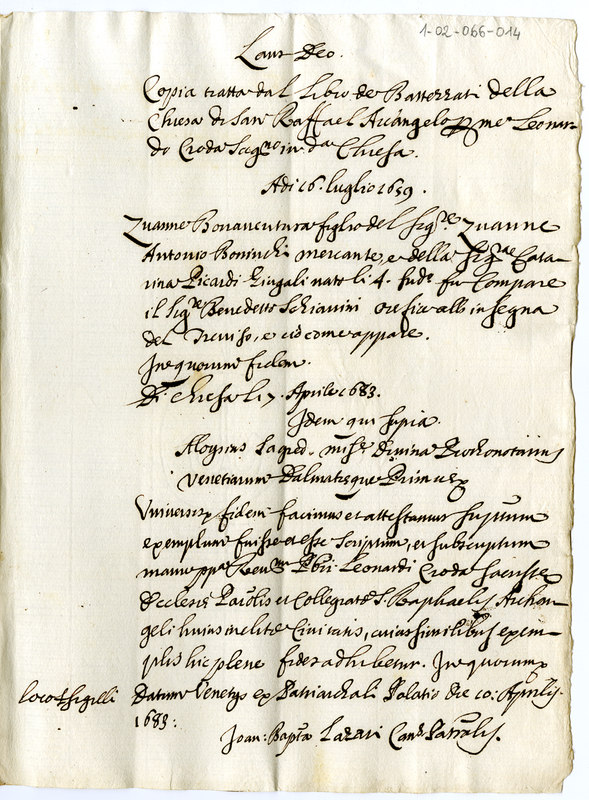 1-02-066-014
Laus Deo.
Copia tratta dal Libro de Battezzati della
Chiesa di San Raffael Arcangelo p me Leonar-
do Croda Sagno in da Chiesa.
Adi 16. luglio 1659.
Zuanne Bonauentura figlio del Sigre Zuanne
Antonio Boninchi mercante, e della Sigra Cata-
rina Ricardi Zingali nato li 4. fude fu Compare
il Sigre Benedetto Schiauini orefice all insegna
del Treuiso, e cio come appare.
In quorum fidem.
Di Chiesa li 7. Aprile 1683.
Idem qui supra.
Aloysius Sagred. misne Diuina Prothonotarius
Venetiarum Dalmatieque Primas
Vniuersis fidem facimus et attestamur supm
exemplum fuisse et esse scriptum, et subscriptum
manu ppa Reudi Pbri Leonardi Croda Sacriste
Ecclesie Parolis et Collegiate S. Raphaelis Archan-
geli huius inclite Ciuitatis, cuius similibus exem-
plis hic plene fides adhibetur. In quorum
Datum Venetijs ex Patriarchali Palatio die 10: Aprilis
1683:
loco + sigilli
Joan: Bapta Lazari Canc. Patralis.